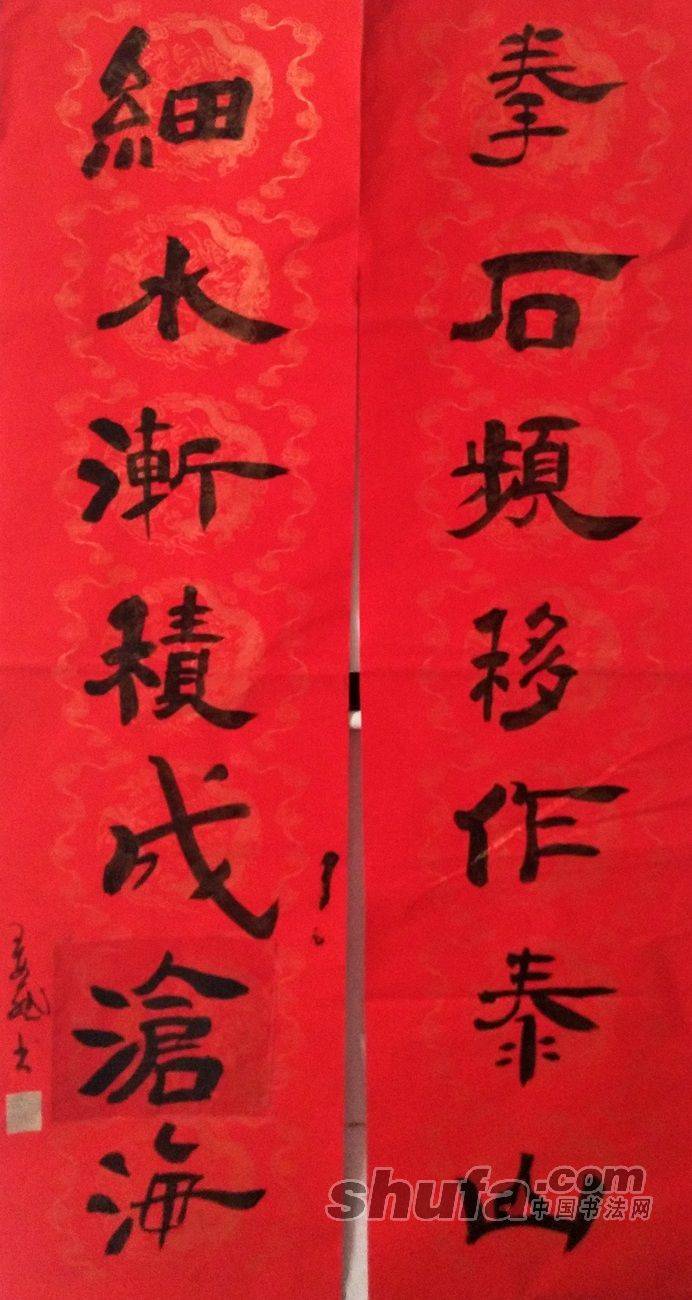 拳石頻移作泰山
細水漸積成滄海
shufa.com
中国书法网